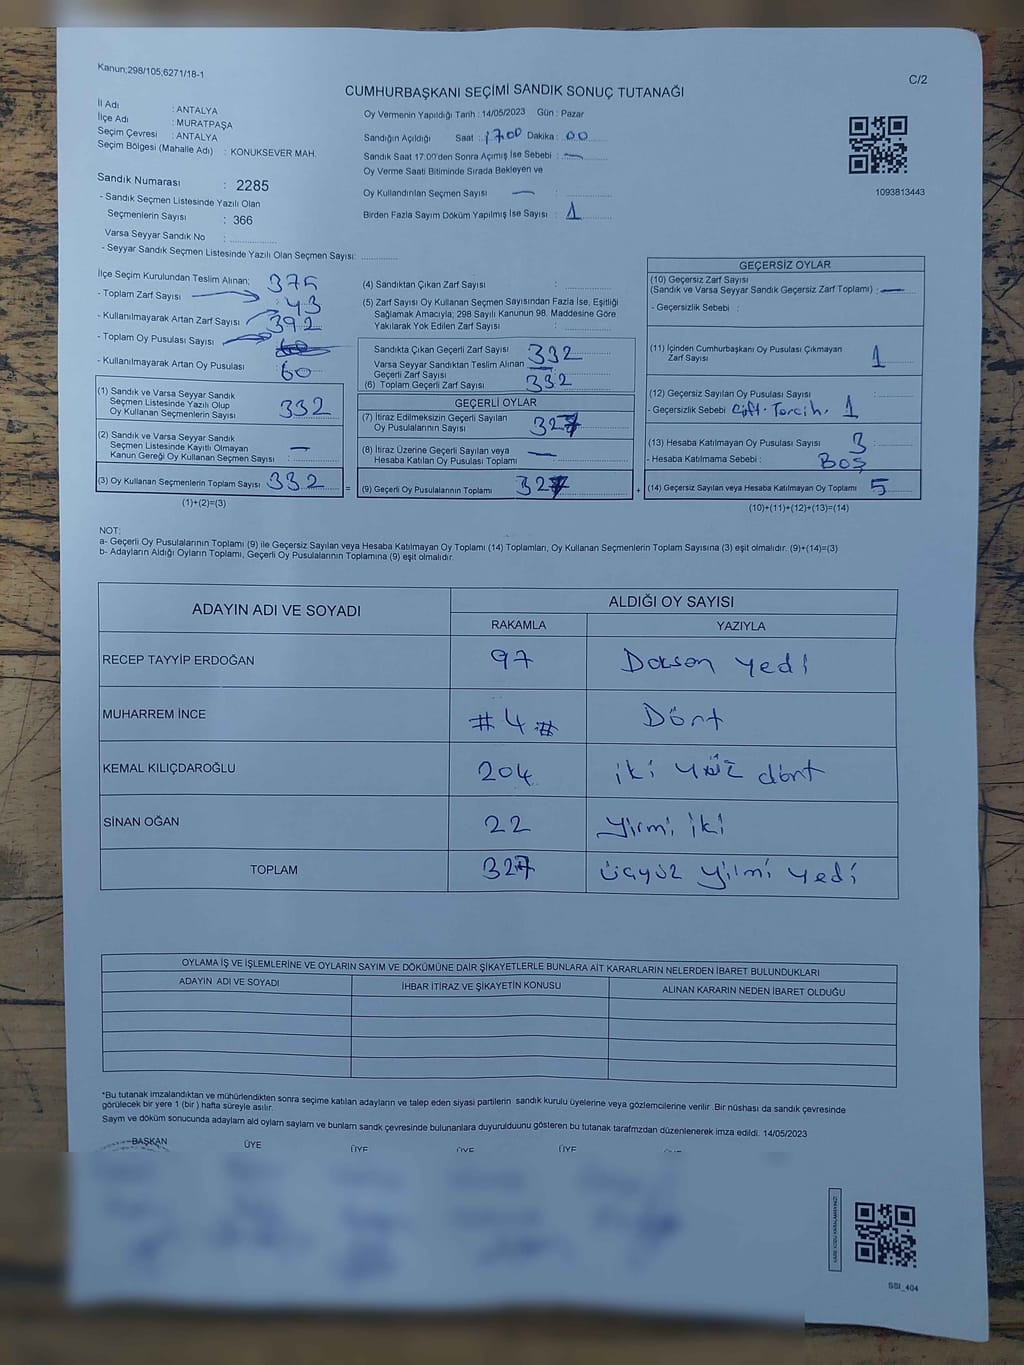 Kanun;298/105;6271/18-1
C/2
CUMHURBAŞKANI SEÇİMİ SANDIK SONUÇ TUTANAĞI
İl Adı : ANTALYA
İlçe Adı : MURATPAŞA
Seçim Çevresi : ANTALYA
Seçim Bölgesi (Mahalle Adı) : KONUKSEVER MAH.
Oy Vermenin Yapıldığı Tarih : 14/05/2023 Gün : Pazar
Sandığın Açıldığı Saat : 17.00 Dakika : 00
Sandık Saat 17:00'den Sonra Açımış İse Sebebi : —
Oy Verme Saati Bitiminde Sırada Bekleyen ve
Oy Kullandırılan Seçmen Sayısı — :
Birden Fazla Sayım Döküm Yapılmış İse Sayısı : 1
1093813443
Sandık Numarası : 2285
- Sandık Seçmen Listesinde Yazılı Olan
Seçmenlerin Sayısı : 366
Varsa Seyyar Sandık No :
- Seyyar Sandık Seçmen Listesinde Yazılı Olan Seçmen Sayısı:
İlçe Seçim Kurulundan Teslim Alınan; 375
- Toplam Zarf Sayısı
- Kullanılmayarak Artan Zarf Sayısı : 43
- Toplam Oy Pusulası Sayısı 392
- Kullanılmayarak Artan Oy Pusulası : 60
(1) Sandık ve Varsa Seyyar Sandık
Seçmen Listesinde Yazılı Olup
Oy Kullanan Seçmenlerin Sayısı 332
(2) Sandık ve Varsa Seyyar Sandık
Seçmen Listesinde Kayıtlı Olmayan
Kanun Gereği Oy Kullanan Seçmen Sayısı : —
(3) Oy Kullanan Seçmenlerin Toplam Sayısı 332 =
(1)+(2)=(3)
(4) Sandıktan Çıkan Zarf Sayısı :
(5) Zarf Sayısı Oy Kullanan Seçmen Sayısından Fazla İse, Eşitliği
Sağlamak Amacıyla; 298 Sayılı Kanunun 98. Maddesine Göre
Yakılarak Yok Edilen Zarf Sayısı :
Sandıkta Çıkan Geçerli Zarf Sayısı 332
Varsa Seyyar Sandıktan Teslim Alınan
Geçerli Zarf Sayısı —
(6) Toplam Geçerli Zarf Sayısı 332
GEÇERLİ OYLAR
(7) İtiraz Edilmeksizin Geçerli Sayılan
Oy Pusulalarının Sayısı 327
(8) İtiraz Üzerine Geçerli Sayılan veya
Hesaba Katılan Oy Pusulası Toplamı —
(9) Geçerli Oy Pusulalarının Toplamı 327 +
GEÇERSİZ OYLAR
(10) Geçersiz Zarf Sayısı
(Sandık ve Varsa Seyyar Sandık Geçersiz Zarf Toplamı) : —
- Geçersizlik Sebebi :
(11) İçinden Cumhurbaşkanı Oy Pusulası Çıkmayan
Zarf Sayısı 1
(12) Geçersiz Sayılan Oy Pusulası Sayısı :
- Geçersizlik Sebebi Çift. Tercih. 1
(13) Hesaba Katılmayan Oy Pusulası Sayısı 3 :
- Hesaba Katılmama Sebebi : BOŞ
(14) Geçersiz Sayılan veya Hesaba Katılmayan Oy Toplamı 5
(10)+(11)+(12)+(13)=(14)
NOT:
a- Geçerli Oy Pusulalarının Toplamı (9) ile Geçersiz Sayılan veya Hesaba Katılmayan Oy Toplamı (14) Toplamları, Oy Kullanan Seçmenlerin Toplam Sayısına (3) eşit olmalıdır. (9)+(14)=(3)
b- Adayların Aldığı Oyların Toplamı, Geçerli Oy Pusulalarının Toplamına (9) eşit olmalıdır.
ADAYIN ADI VE SOYADI
ALDIĞI OY SAYISI
RAKAMLA YAZIYLA
RECEP TAYYİP ERDOĞAN 97 Doksan yedi
MUHARREM İNCE # 4 # Dört
KEMAL KILIÇDAROĞLU 204 iki yüz dört
SİNAN OĞAN 22 yirmi iki
TOPLAM 327 üçyüz yilmi yedi
OYLAMA İŞ VE İŞLEMLERİNE VE OYLARIN SAYIM VE DÖKÜMÜNE DAİR ŞİKAYETLERLE BUNLARA AİT KARARLARIN NELERDEN İBARET BULUNDUKLARI
ADAYIN ADI VE SOYADI İHBAR İTİRAZ VE ŞİKAYETİN KONUSU ALINAN KARARIN NEDEN İBARET OLDUĞU
*Bu tutanak imzalandıktan ve mühürlendikten sonra seçime katılan adayların ve talep eden siyasi partilerin sandık kurulu üyelerine veya gözlemcilerine verilir. Bir nüshası da sandık çevresinde
görülecek bir yere 1 (bir) hafta süreyle asılır.
Sayım ve döküm sonucunda adaylam ald oylam saylam ve bunlam sandk çevresinde bulunanlara duyurulduunu gösteren bu tutanak tarafmzdan düzenlenerek imza edildi. 14/05/2023
BAŞKAN ÜYE ÜYE ÜYE ÜYE
SSI_404